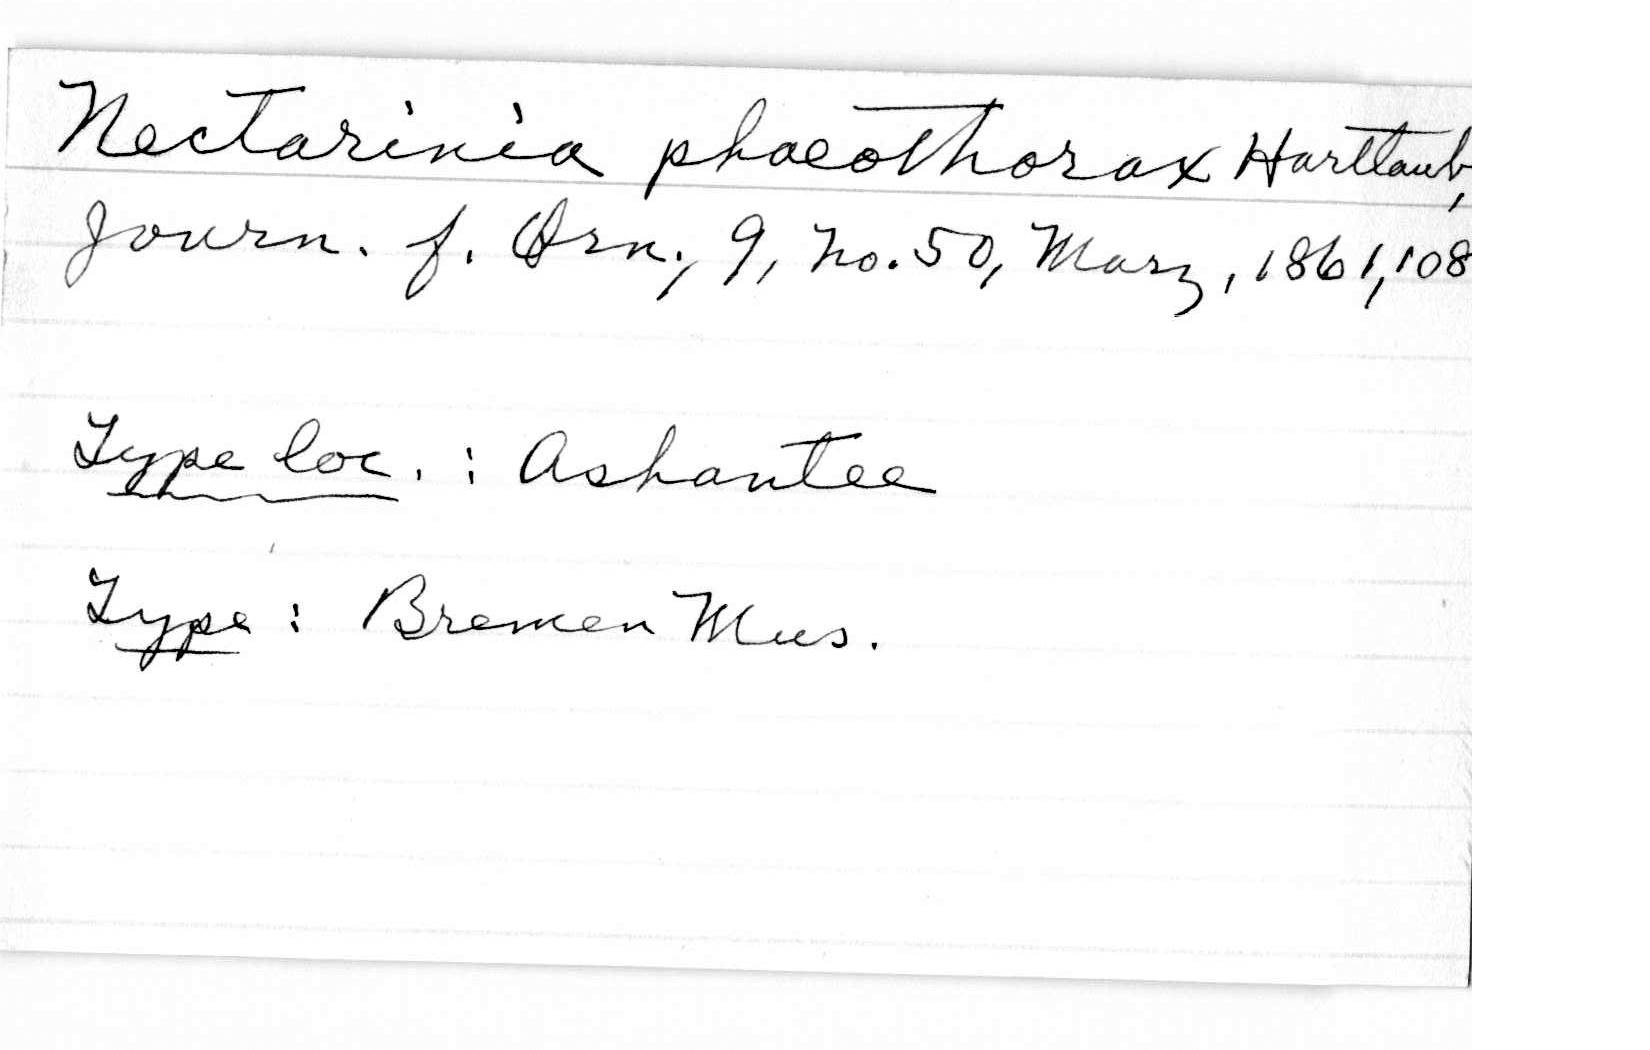 Nectarinia phaeothorax Hartlaub,
Journ. f. Orn., 9, no. 50, Marz, 1861, 108
Type loc. : Ashantee
Type : Bremen Mus.